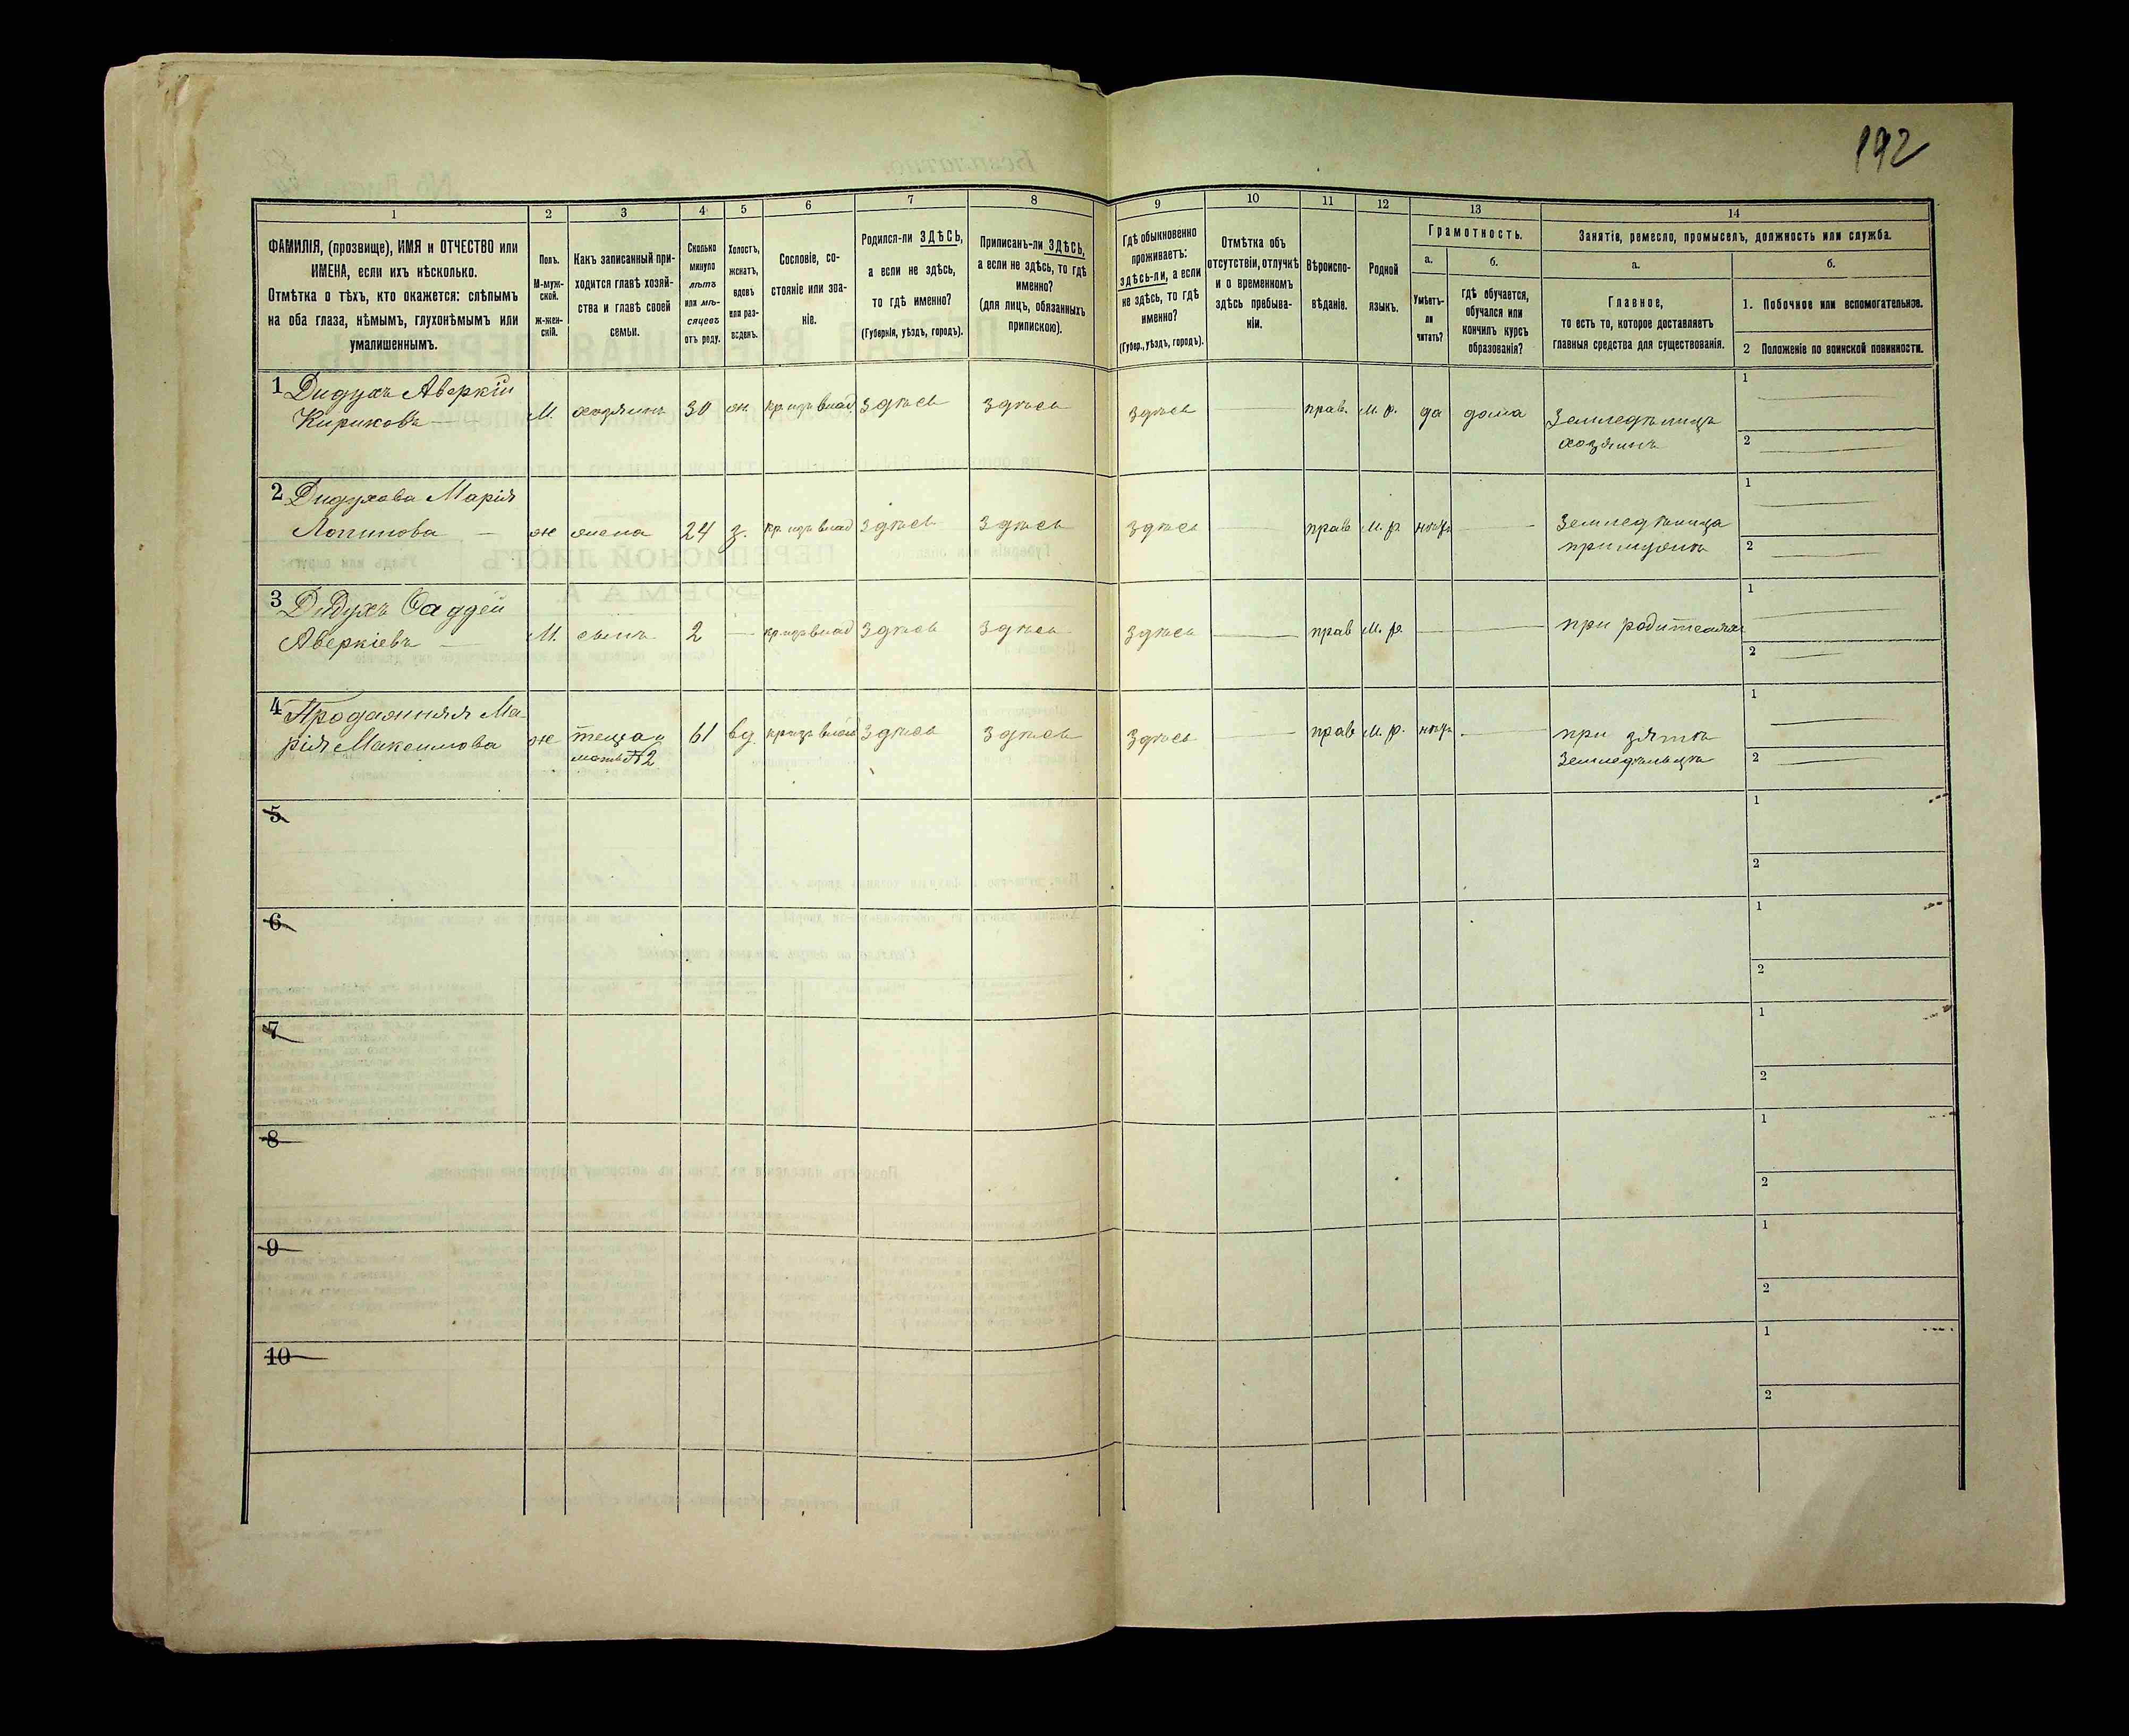 192
1
2
3
4
5
6
7
8
9
10
11
12
13
14
ФАМИЛІЯ, (прозвище), ИМЯ и ОТЧЕСТВО или
ИМЕНА, если ихъ нѣсколько.
Отмѣтка о тѣхъ, кто окажется: слѣпымъ
на оба глаза, нѣмымъ, глухонѣмымъ или
умалишеннымъ.
Полъ.
М-муж-
ской.
Ж-жен-
скій.
Какъ записанный при-
ходится главѣ хозяй-
ства и главѣ своей
семьи.
Сколько
минуло
лѣтъ
или мѣ-
сяцевъ
отъ роду.
Холостъ,
женатъ,
вдовъ
или раз-
веденъ.
Сословіе, со-
стояніе или зва-
ніе.
Родился-ли ЗДѢСЬ,
а если не здѣсь,
то гдѣ именно?
(Губернія, уѣздъ, городъ).
Приписанъ-ли ЗДѢСЬ,
а если не здѣсь, то гдѣ
именно?
(для лицъ, обязанныхъ
припискою).
Гдѣ обыкновенно
проживаетъ:
здѣсь-ли, а если
не здѣсь, то гдѣ
именно?
(Губер., уѣздъ, городъ).
Отмѣтка объ
отсутствіи, отлучкѣ
и о временномъ
здѣсь пребыва-
ніи.
Вѣроиспо-
вѣданіе.
Родной
языкъ.
Грамотность.
а.
Умѣетъ-
ли
читать?
б.
гдѣ обучается,
обучался или
кончилъ курсъ
образованія?
Занятіе, ремесло, промыселъ, должность или служба.
а.
Главное,
то есть то, которое доставляетъ
главныя средства для существованія.
б.
1. Побочное или вспомогательное.
2 Положеніе по воинской повинности.
1 Дидухъ Аверкій
Кириковъ
М. хозяинъ 30 ж. кр. изъ влад здѣсь здѣсь здѣсь прав. М. р. да дома
Земледѣлецъ
хозяинъ
1
2
2 Дидухова Марія
Логинова
ж жена 24 з. кр изъ влад здѣсь здѣсь здѣсь прав М. р нѣтъ
земледѣлица
при мужѣ
1
2
3 Дидухъ Фаддей
Аверкіевъ
М. сынъ 2 кр изъ влад здѣсь здѣсь здѣсь прав М. р.
при родителяхъ
1
2
4 Продажняя Ма-
рія Максимова
ж теща и
мать № 2
61 вд. кр изъ влад здѣсь здѣсь здѣсь прав М. р. нѣтъ
при зятѣ
земледѣльцѣ
1
2
5
1
2
6
1
2
7
1
2
8
1
2
9
1
2
10
1
2